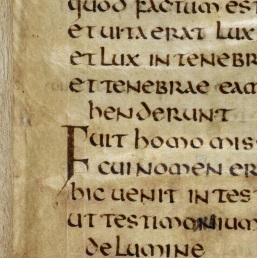 quod factum est
et uita erat lux
et lux in tenebr
et tenebrae eam
henderunt
Fuit homo mis
cui nomen er
hic uenit in tes
ut testimonium
de lumine